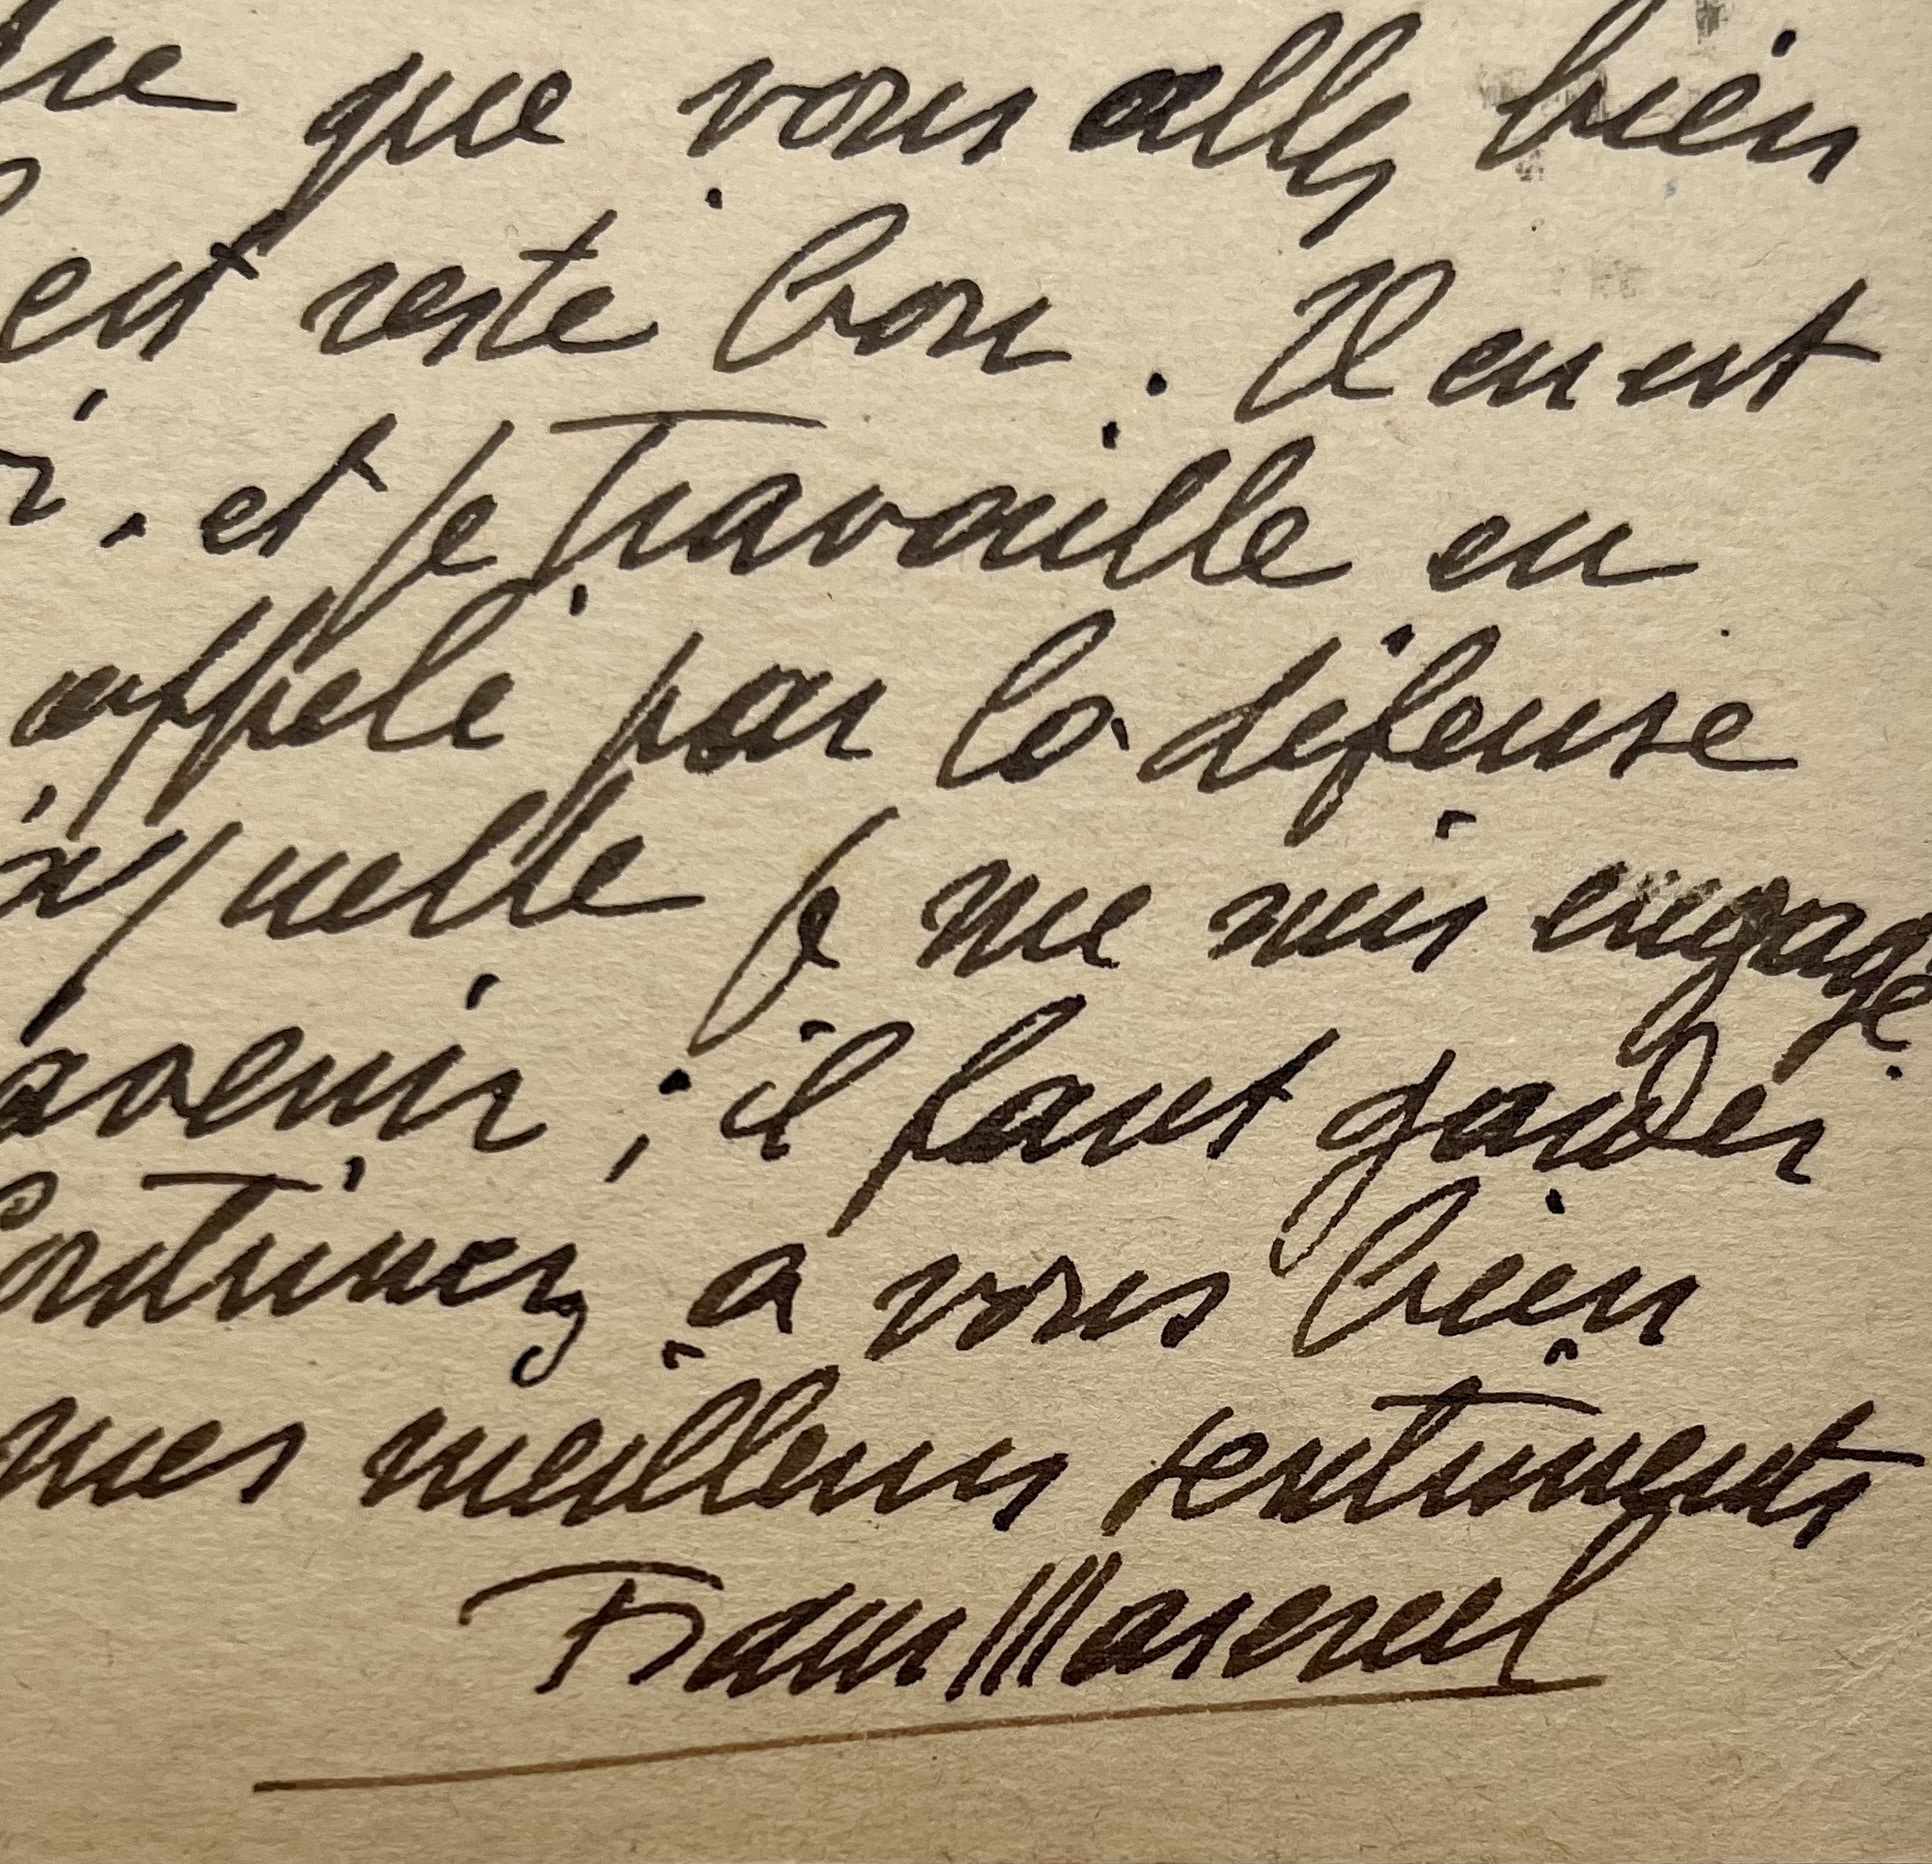 que vous allez bien
est resté bon. Il en est
. et je travaille en
appelé par la défense
quelle je me suis engagé.
avenir ; il faut garder
Continuez à vous bien
mes meilleurs sentiments
Frans Masereel